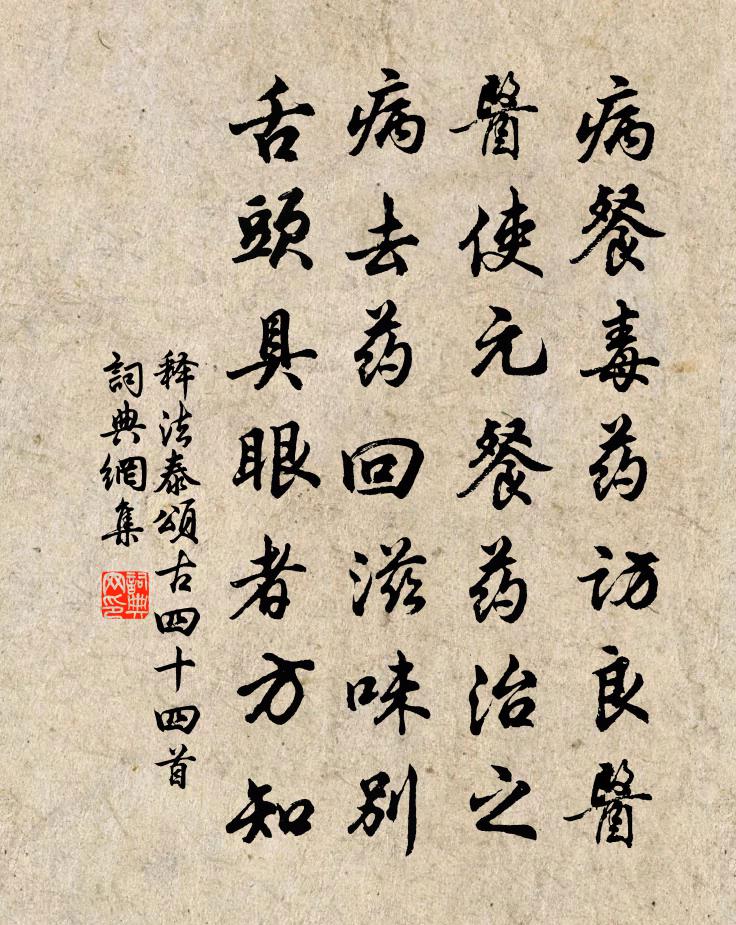 病餐毒药访良醫
醫使元餐药治之
病去药回滋味别
舌頭具眼者方知
释法泰頌古四十四首
詞典網集
詞典网印